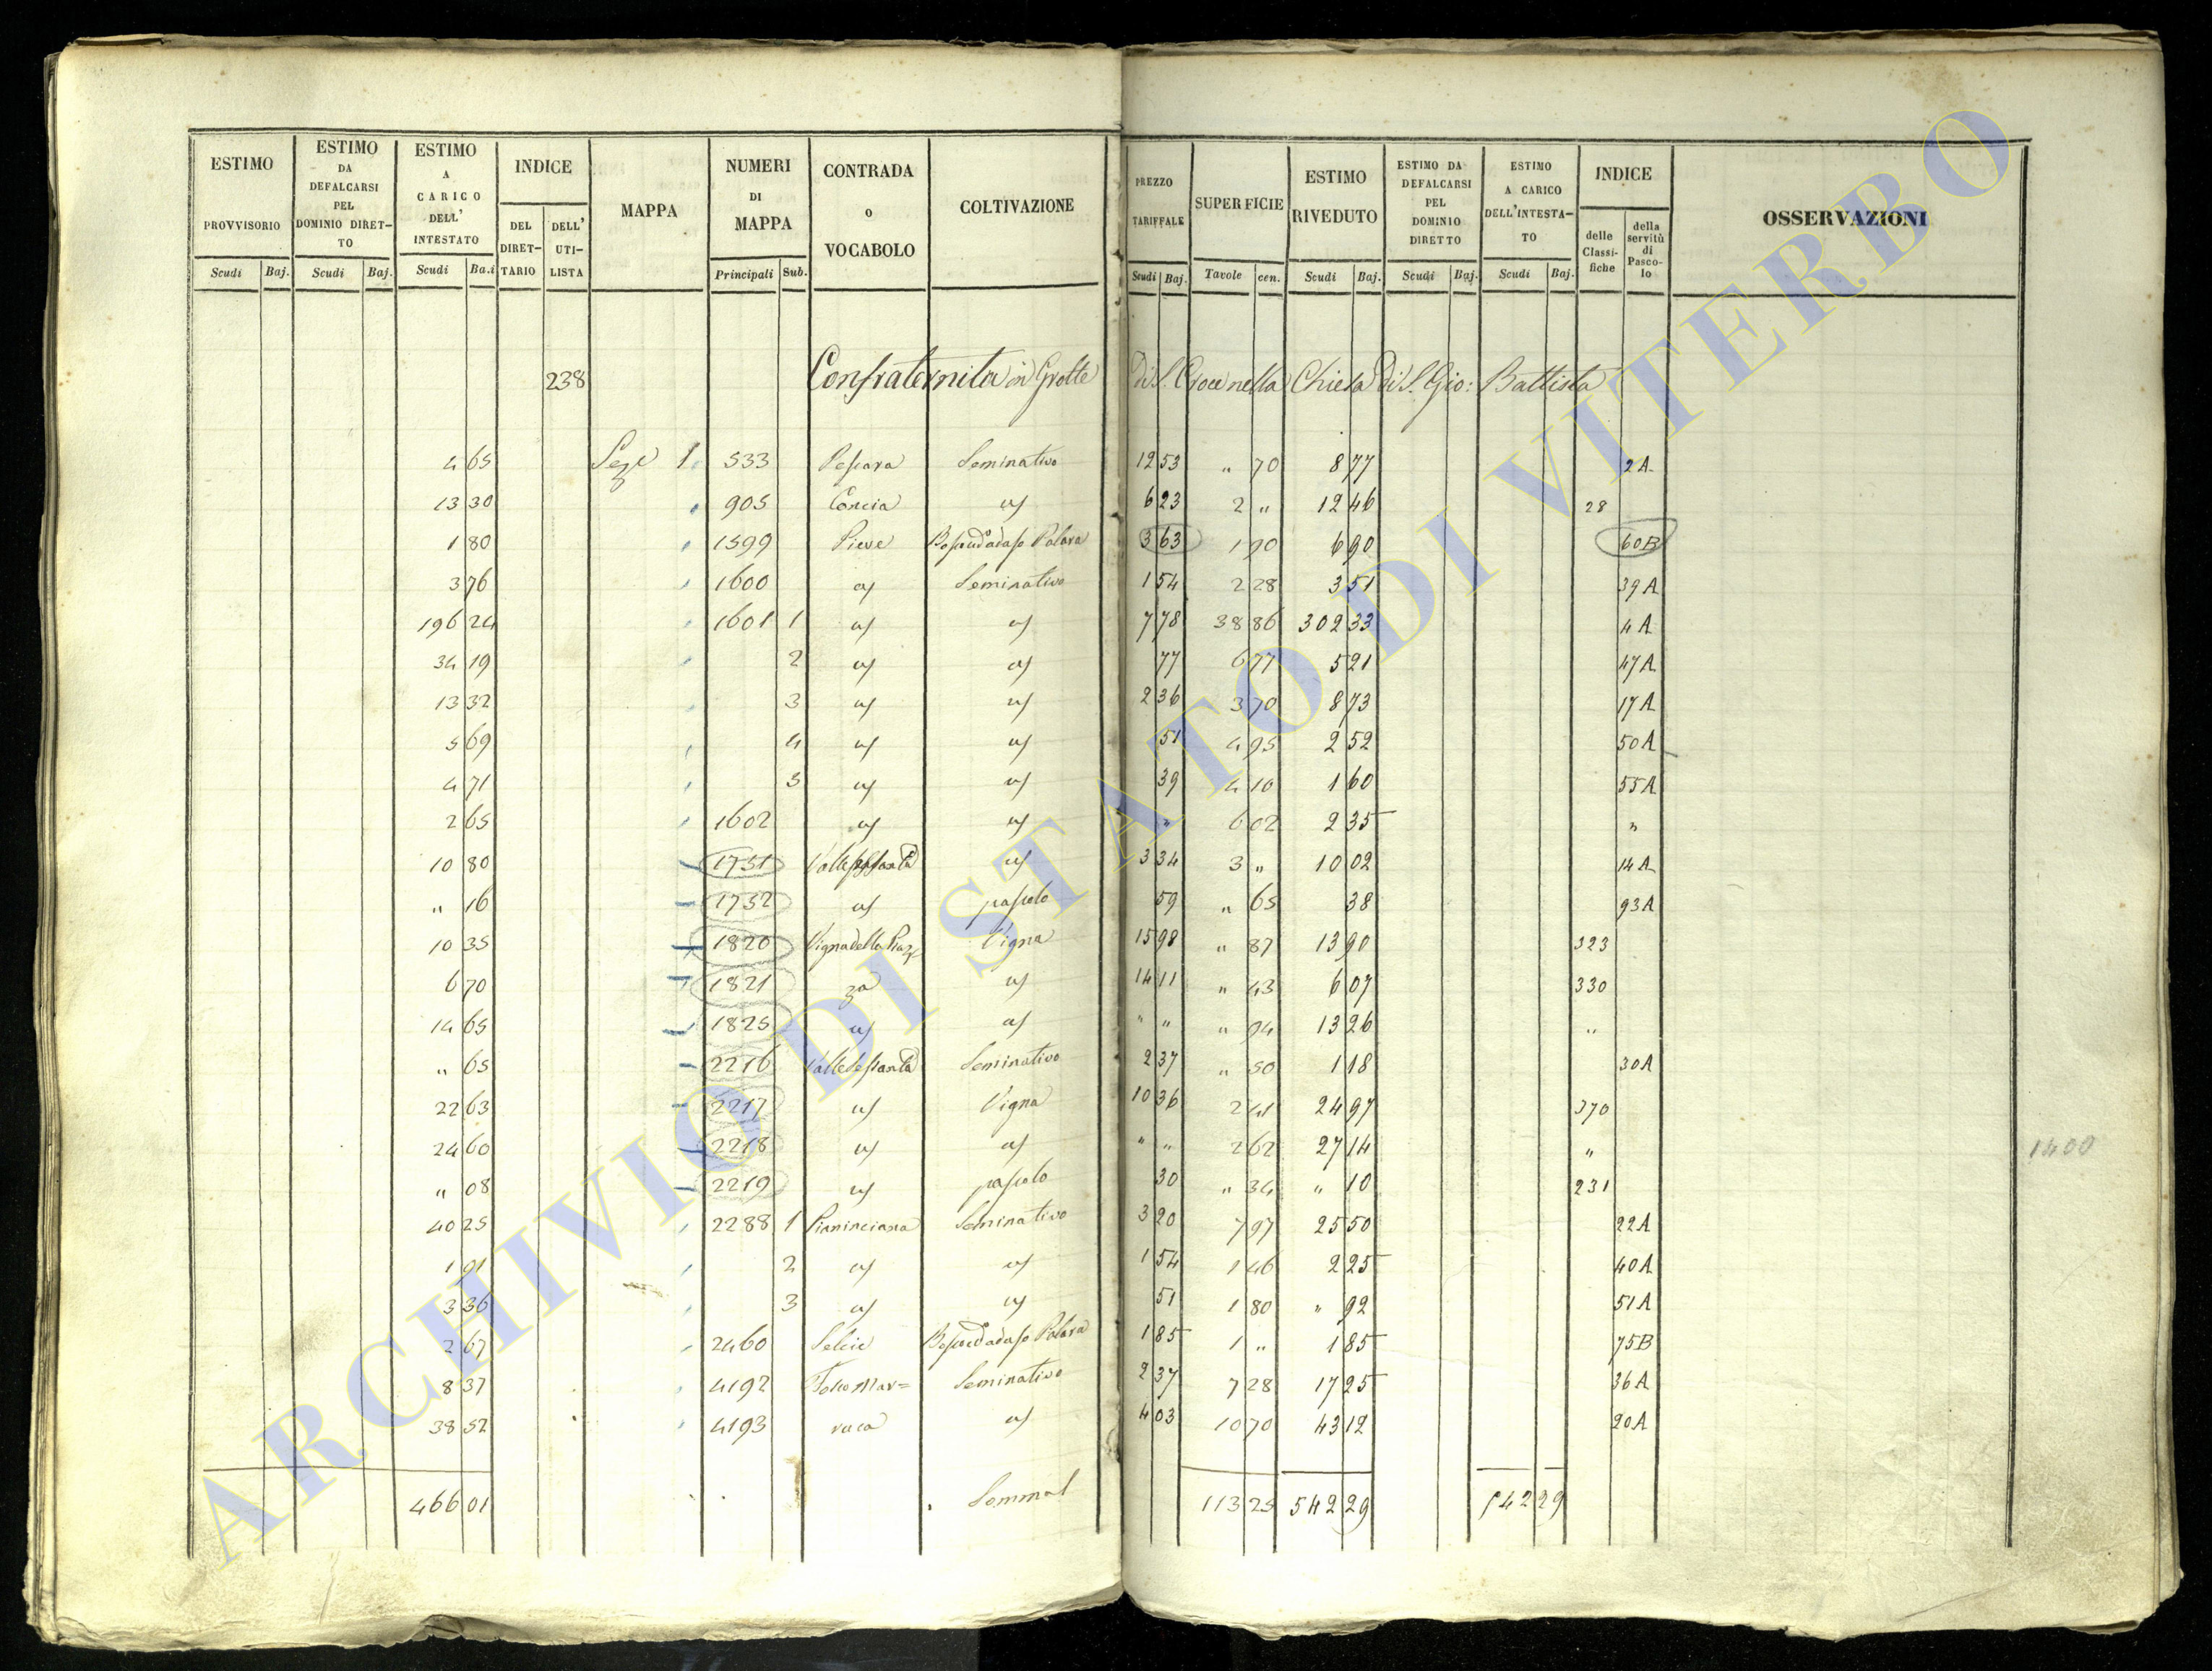 ESTIMO PROVVISORIO Scudi Baj.
ESTIMO DA DEFALCARSI PEL DOMINIO DIRETTO Scudi Baj.
ESTIMO A CARICO DELL' INTESTATO Scudi Ba.i
INDICE DEL DIRET-TARIO DELL' UTI-LISTA
MAPPA
NUMERI DI MAPPA Principali Sub.
CONTRADA O VOCABOLO
COLTIVAZIONE
PREZZO TARIFFALE Scudi Baj.
SUPERFICIE Tavole cen.
ESTIMO RIVEDUTO Scudi Baj.
ESTIMO DA DEFALCARSI PEL DOMINIO DIRETTO Scudi Baj.
ESTIMO A CARICO DELL'INTESTA-TO Scudi Baj.
INDICE delle Classi-fiche della servitù di Pasco-lo
OSSERVAZIONI
238 Confraternita in Grotte di S. Croce nella Chiesa di S. Gio: Battista
4 65 Sez.e 1 533 Pescara Seminativo 12 53 " 70 8 77 2A
13 30 905 Concia 6 23 2 " 12 46 28
1 80 1599 Pieve 3 63 1 90 6 90 60B
3 76 1600 Seminativo 1 54 2 28 3 51 39A
196 24 1601 1 7 78 38 86 302 33 4A
34 19 2 77 6 77 5 21 47A
13 32 3 2 36 3 70 8 73 17A
5 69 4 51 4 95 2 52 50A
4 71 39 4 10 1 60 55A
2 65 1602 " 6 02 2 35 "
10 80 1751 3 34 3 " 10 02 14A
" 16 1752 pascolo 59 " 65 38 93A
10 35 1820 Vigna della Piaz Vigna 15 98 " 87 13 90 323
6 70 1821 za 14 11 " 43 6 07 330
14 65 1825 " " " 94 13 26 "
" 65 2216 Seminativo 2 37 " 50 1 18 30A
22 63 2217 Vigna 10 36 2 41 24 97 370
24 60 2218 " " 2 62 27 14 "
" 08 2219 pascolo 30 " 34 " 10 231
40 25 2288 1 Pianinciana Seminativo 3 20 7 97 25 50 22A
1 91 2 1 54 1 46 2 25 40A
3 36 3 51 1 80 " 92 51A
2 67 2460 Selcie 1 85 1 " 1 85 75B
8 37 4192 Seminativo 2 37 7 28 17 25 36A
38 52 4193 4 03 10 70 43 12 20A
466 01 113 25 542 29 542 29
1400
ARCHIVIO DI STATO DI VITERBO